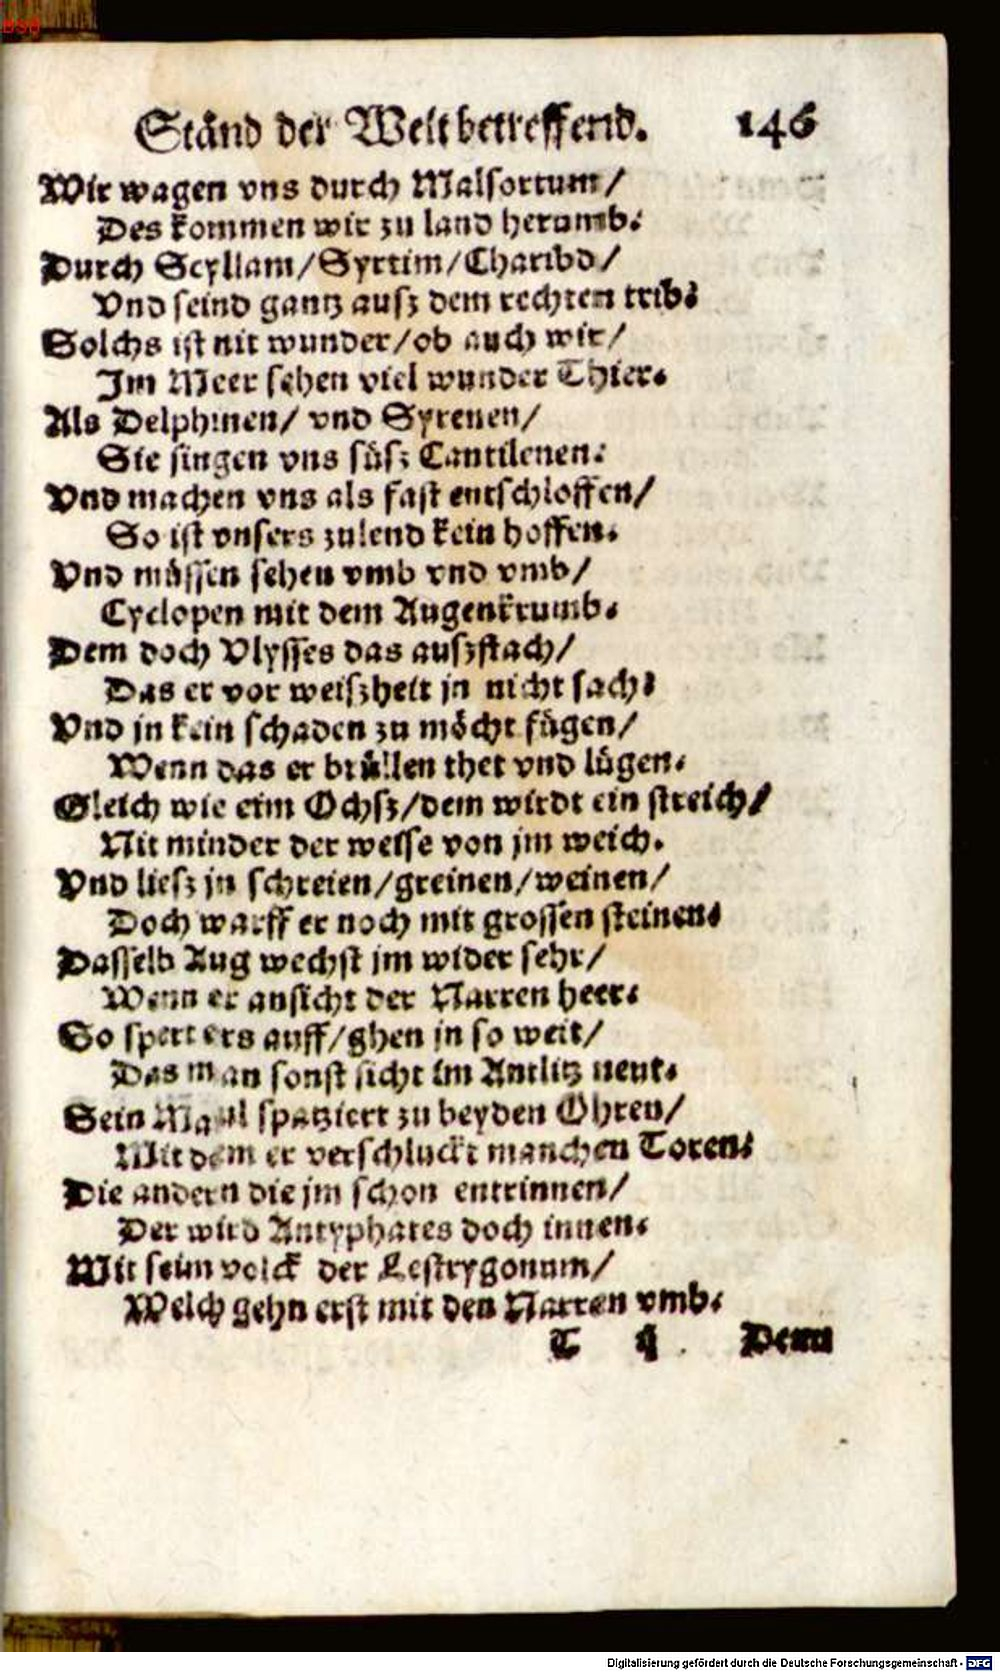 BSB
Ständ der Welt betreffend. 146
Wir wagen vns durch Malfortum/
Des kommen wir zu land herumb.
Durch Scyllam/Syrtim/Charibd/
Vnd seind gantz ausz dem rechten trib.
Solchs ist nit wunder/ob auch wir/
Im Meer sehen viel wunder Thier.
Als Delphinen/ vnd Syrenen/
Sie singen vns süsz Cantilenen:
Vnd machen vns als fast entschloffen/
So ist vnsers zulend kein hoffen.
Vnd müssen sehen vmb vnd vmb/
Cyclopen mit dem Augenkrumb.
Dem doch Vlysses das auszstach/
Das er vor weiszheit jn nicht sach.
Vnd jn kein schaden zu möcht fügen/
Wenn das er brüllen thet vnd lügen.
Gleich wie eim Ochsz/dem wirdt ein streich/
Nit minder der weise von jm weich.
Vnd liesz jn schreien/greinen/weinen/
Doch warff er noch mit grossen steinen.
Dasselb Aug wechst jm wider sehr/
Wenn er ansicht der Narren heer.
So sperrt ers auff/ghen jn so weit/
Das man sonst sicht im Antlitz neut.
Sein Maul spatziert zu beyden Ohren/
Mit dem er verschluckt manchen Toren.
Die andern die jm schon entrinnen/
Der wird Antyphates doch innen.
Mit seim volck der Lestrygonum/
Welch gehn erst mit den Narren vmb.
T ij Denn
Digitalisierung gefördert durch die Deutsche Forschungsgemeinschaft - DFG